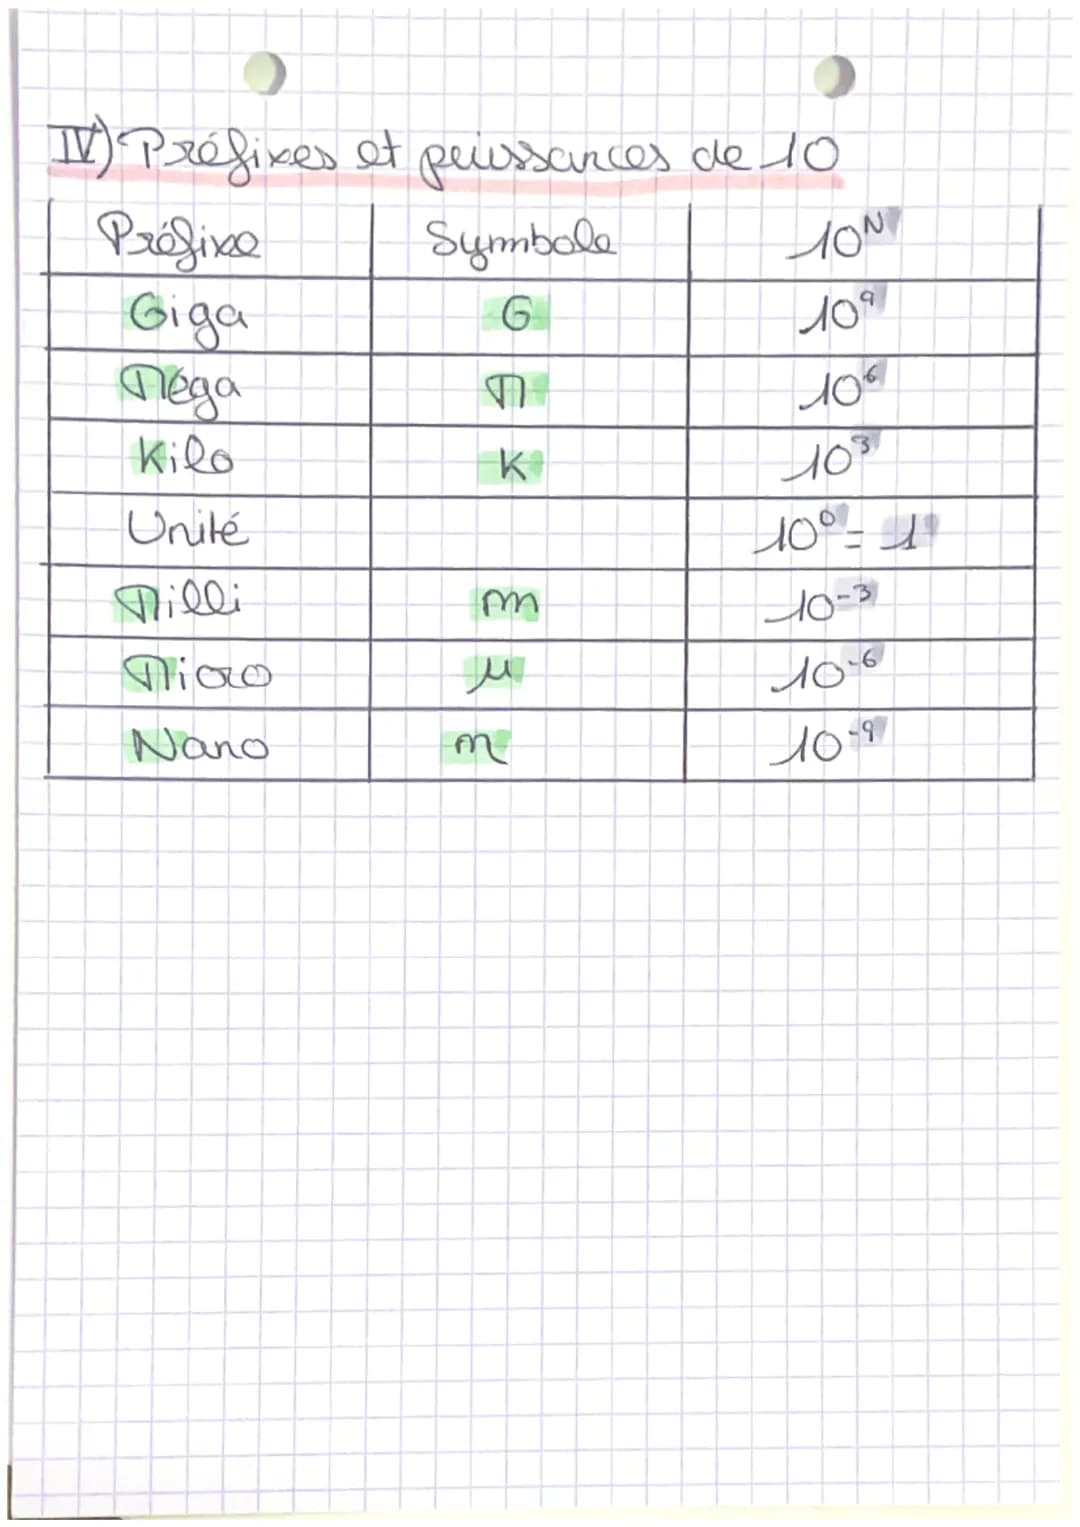 IV) Préfixes et puissances de 10
Préfixe Symbole 10^N
Giga G 10^9
Méga M 10^6
Kilo K 10^3
Unité 10^0 = 1
Milli m 10^-3
Micro μ 10^-6
Nano n 10^-9